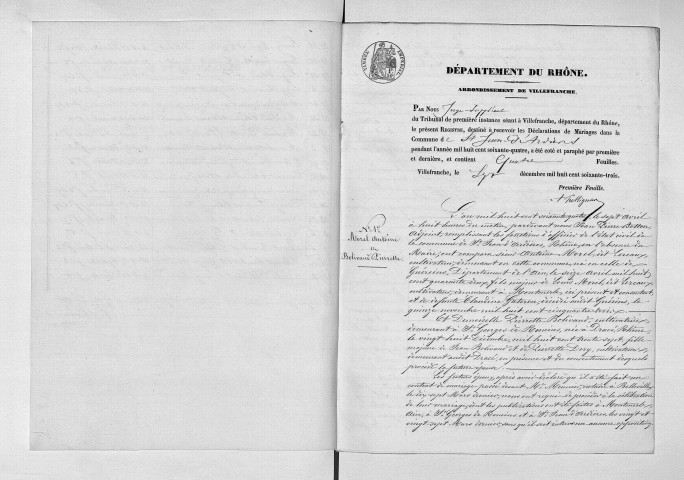 DÉPARTEMENT DU RHÔNE.
ARRONDISSEMENT DE VILLEFRANCHE.
PAR NOUS Juge Suppléant
du Tribunal de première instance séant à Villefranche, département du Rhône,
le présent REGISTRE, destiné à recevoir les Déclarations de Mariages dans la
Commune de St Jean d'Ardières
pendant l'année mil huit cent soixante-quatre, a été coté et paraphé par première
et dernière, et contient Quatre Feuilles.
Villefranche, le décembre mil huit cent soixante-trois.
Première Feuille.
N° 1er
Morel Antoine
et
Bélivaud Pierrette
L'an mil huit cent soixante quatre, le sept avril
à huit heures du matin, pardevant nous Jean Pierre
adjoint, remplissant les fonctions d'officier de l'état civil de
la commune de St Jean d'Ardières, Rhône, en l'absence du
Maire, ont comparu sieur Antoine Morel, dit
cultivateur, demeurant en cette commune, né en celle de
Département de l'Ain, le seize avril mil huit
cent quarante deux, fils majeur de Louis Morel, dit
cultivateur, demeurant à ici présent et consentant,
et de défunte Claudine décédée audit le
quinze novembre mil huit cent cinquante trois
Et Demoiselle Pierrette Bélivaud, cultivatrice
demeurant à St Georges de Reneins, née à Dracé, Rhône,
le vingt huit Décembre, mil huit cent trente sept, fille
majeure de Jean Bélivaud et de Pierrette cultivateurs
demeurant audit Dracé, en présence et du consentement desquels
procède la future épouse
Les futurs époux, après avoir déclaré qu'il a été fait un
contrat de mariage passé devant Me notaire à Belleville
le dix sept Mars dernier, nous ont requis de procéder à la célébration
de leur mariage, dont les publications ont été faites à
Ain, à St Georges de Reneins et à St Jean d'Ardières, les vingt et
vingt sept Mars dernier, sans qu'il soit intervenu aucune opposition